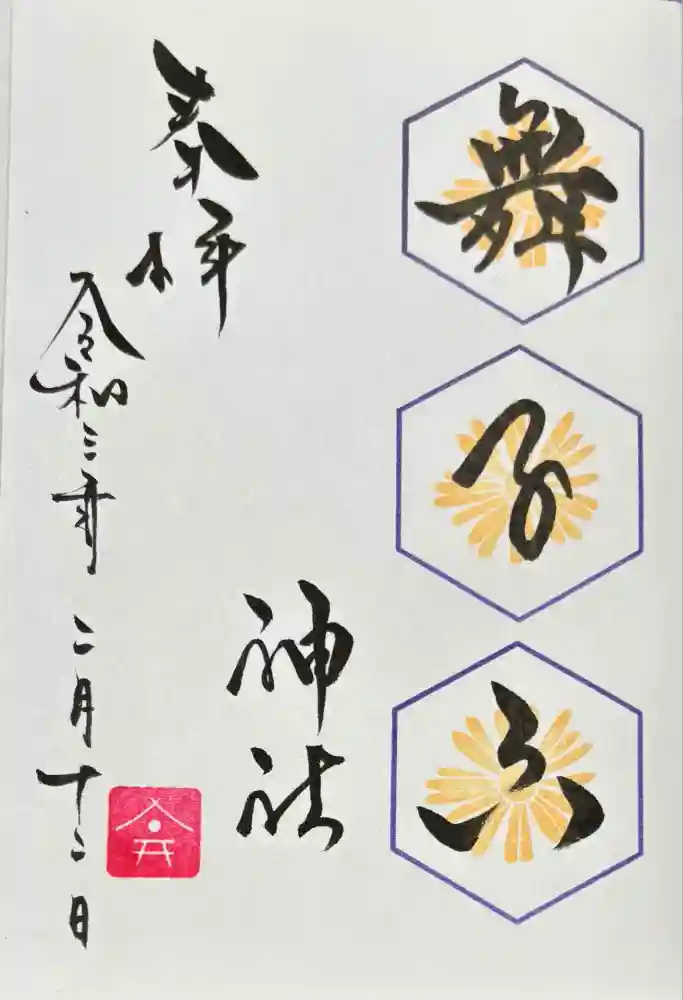 舞子六
神社
奉拝
令和三年 二月十二日